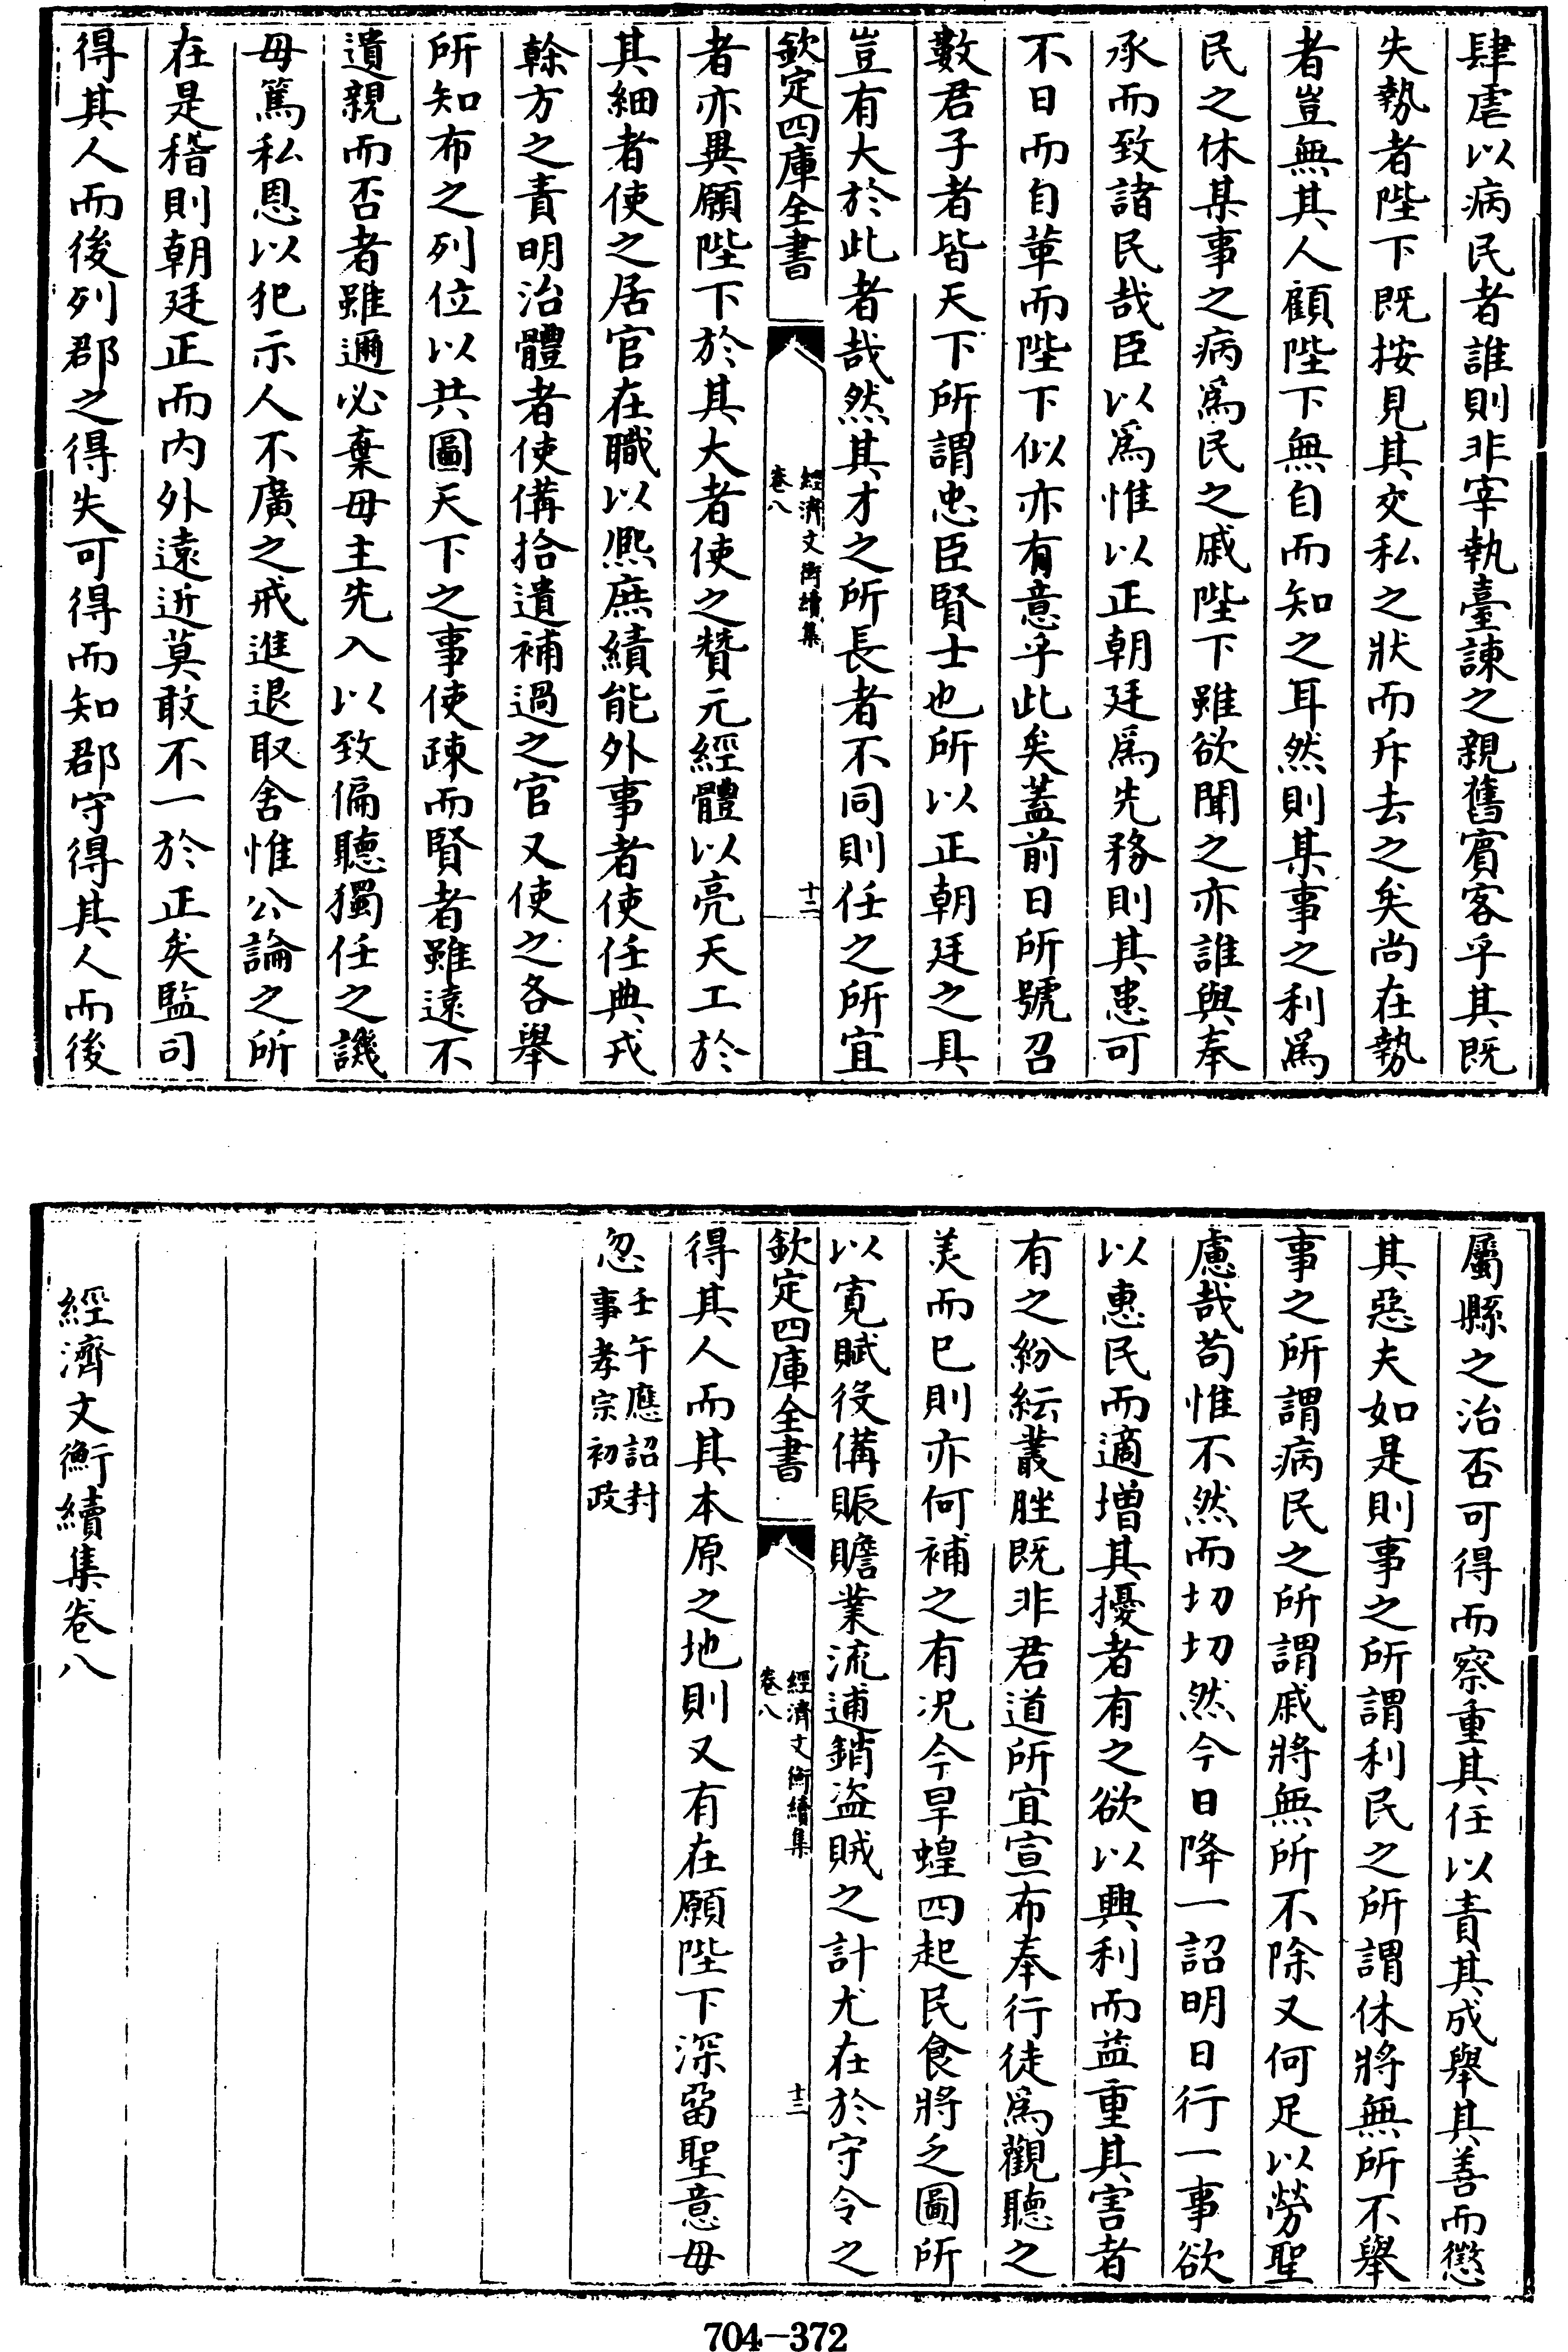 肆虐以病民者誰則非宰執臺諫之親舊賓客乎其既
失勢者陛下既按見其交私之狀而斥去之矣尚在勢
者豈無其人顧陛下無自而知之耳然則某事之利爲
民之休某事之病爲民之戚陛下雖欲聞之亦誰與奉
承而致諸民哉臣以爲惟以正朝廷爲先務則其患可
不日而自革而陛下似亦有意乎此矣蓋前日所號召
數君子者皆天下所謂忠臣賢士也所以正朝廷之具
豈有大於此者哉然其才之所長者不同則任之所宜
欽定四庫全書
經濟文衡續集
卷八
十二
者亦異願陛下於其大者使之贊元經體以亮天工於
其細者使之居官在職以熈庶績能外事者使任典戎
榦方之責明治體者使備拾遺補過之官又使之各舉
所知布之列位以共圖天下之事使疎而賢者雖遠不
遺親而否者雖邇必棄毋主先入以致偏聽獨任之譏
毋篤私恩以犯示人不廣之戒進退取舍惟公論之所
在是稽則朝廷正而内外遠近莫敢不一於正矣監司
得其人而後列郡之得失可得而知郡守得其人而後
屬縣之治否可得而察重其任以責其成舉其善而懲
其惡夫如是則事之所謂利民之所謂休將無所不舉
事之所謂病民之所謂戚將無所不除又何足以勞聖
慮哉苟惟不然而切切然今日降一詔明日行一事欲
以惠民而適增其擾者有之欲以興利而益重其害者
有之紛紜叢脞既非君道所宜宣布奉行徒爲觀聽之
美而已則亦何補之有况今旱蝗四起民食將乏圖所
以寛賦役備賑贍業流逋銷盜賊之計尤在於守令之
欽定四庫全書
經濟文衡續集
卷八
十三
得其人而其本原之地則又有在願陛下深留聖意毋
忽
壬午應詔封
事孝宗初政
經濟文衡續集卷八
704-372